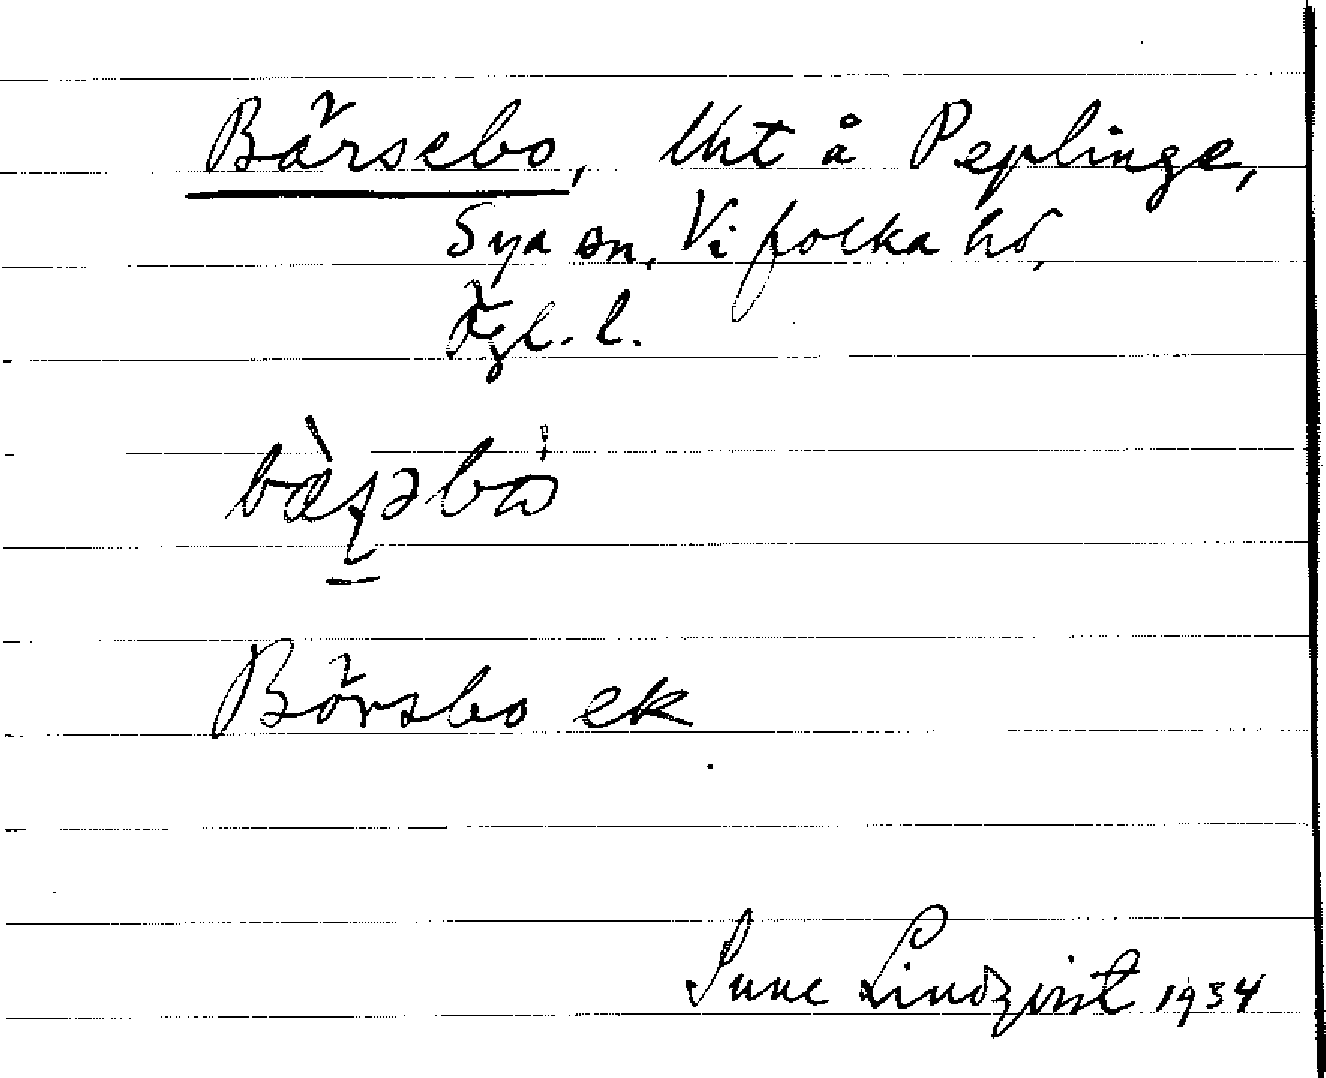 Bärsebo, Lht å Peplinge,
Sya sn, Vifolka hd,
Ögl. l.
Börsbo ek
Sune Lindqvist 1934